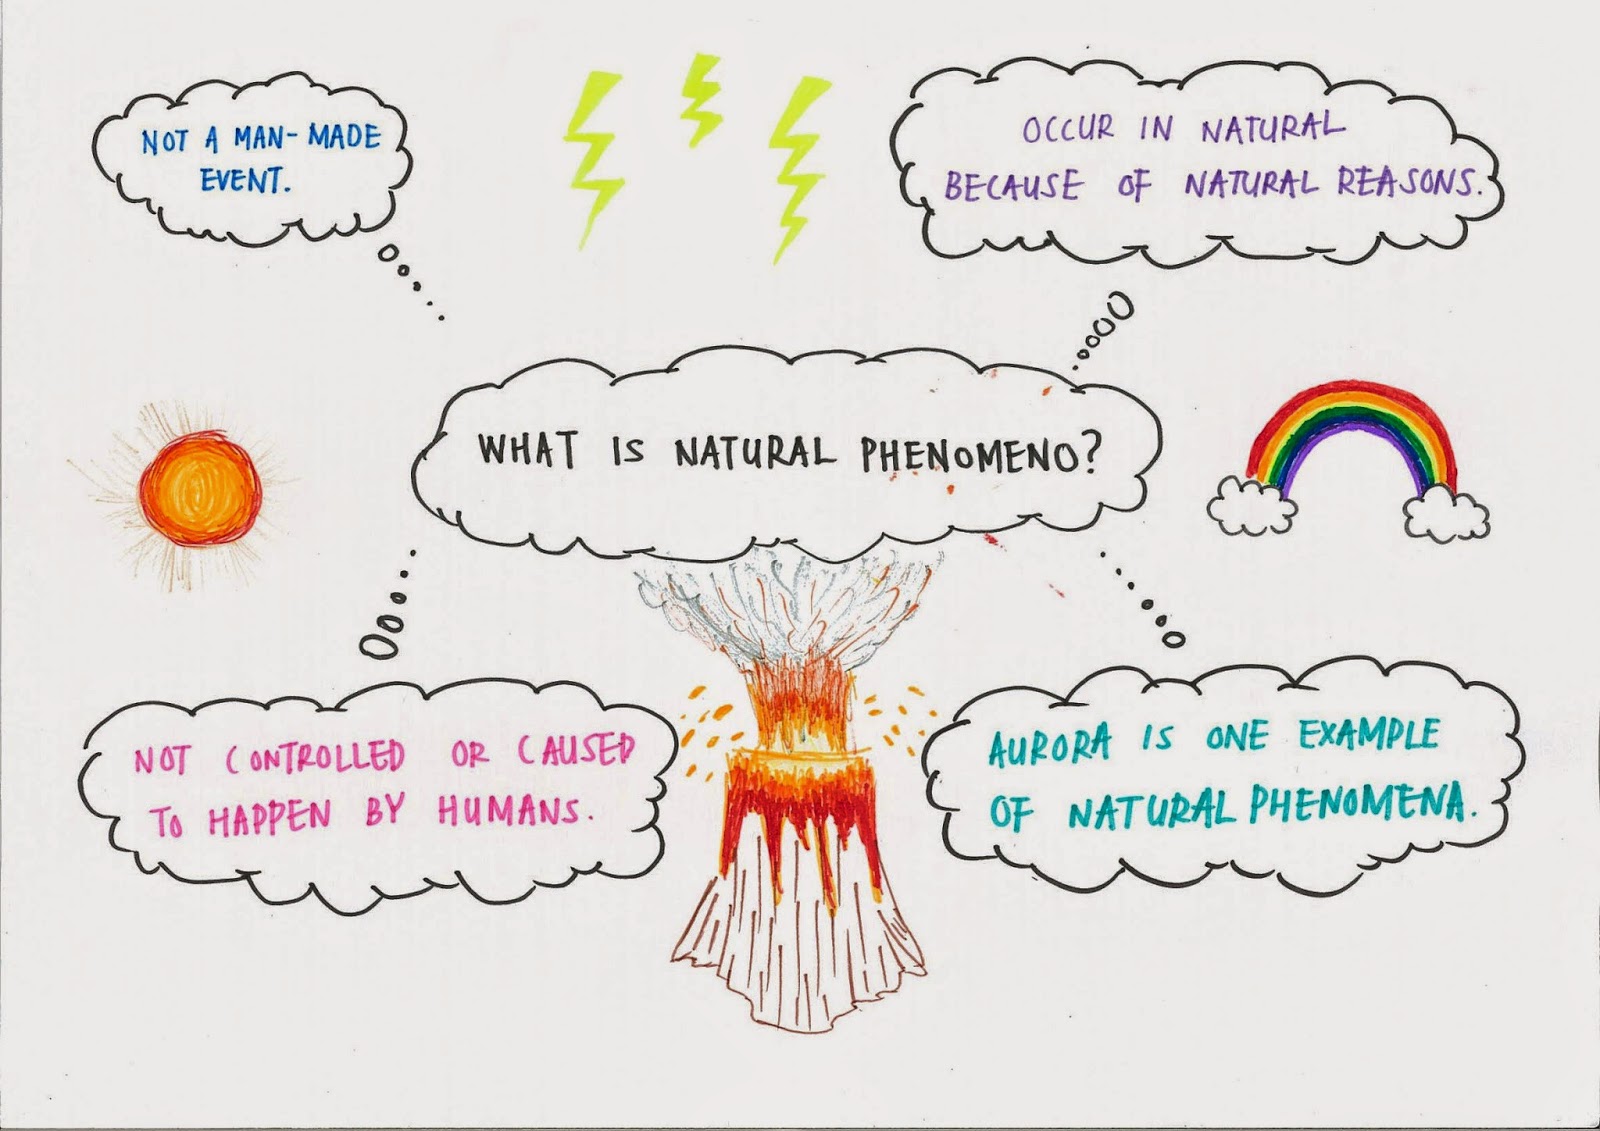 NOT A MAN-MADE
EVENT.
OCCUR IN NATURAL
BECAUSE OF NATURAL REASONS.
WHAT IS NATURAL PHENOMENO?
NOT CONTROLLED OR CAUSED
TO HAPPEN BY HUMANS.
AURORA IS ONE EXAMPLE
OF NATURAL PHENOMENA.